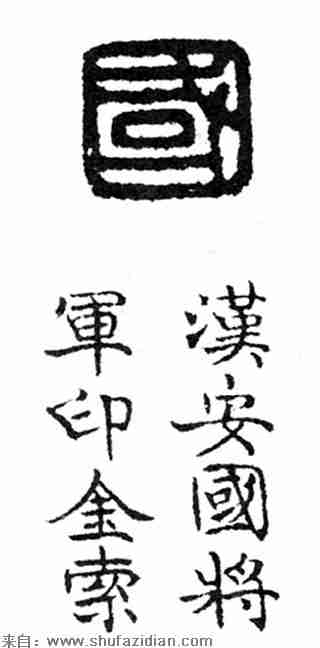 國
漢安國將
軍印金索
来自：www.shufazidian.com